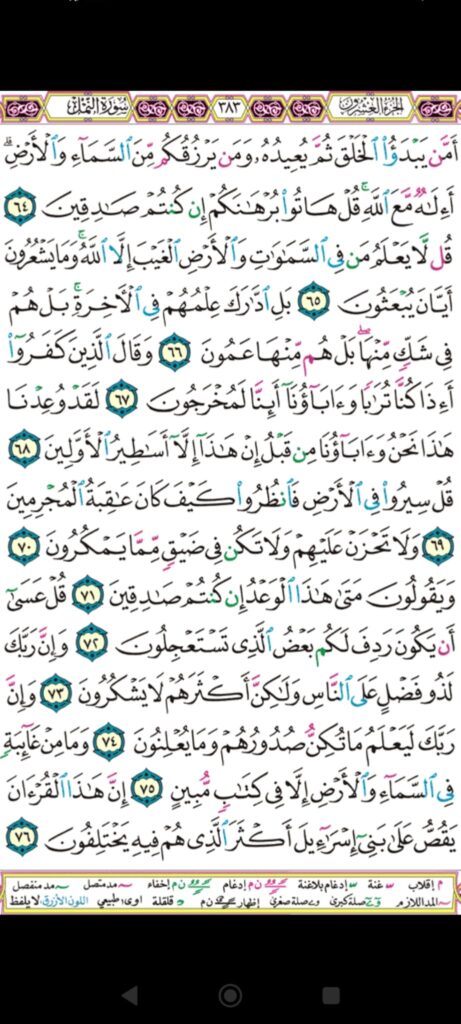 الجزء العشرون ٣٨٣ سورة النمل
أَمَّن يَبْدَؤُا۟ ٱلْخَلْقَ ثُمَّ يُعِيدُهُۥ وَمَن يَرْزُقُكُم مِّنَ ٱلسَّمَآءِ وَٱلْأَرْضِ ۗ
أَءِلَٰهٌ مَّعَ ٱللَّهِ ۚ قُلْ هَاتُوا۟ بُرْهَٰنَكُمْ إِن كُنتُمْ صَٰدِقِينَ ٦٤
قُل لَّا يَعْلَمُ مَن فِى ٱلسَّمَٰوَٰتِ وَٱلْأَرْضِ ٱلْغَيْبَ إِلَّا ٱللَّهُ ۚ وَمَا يَشْعُرُونَ
أَيَّانَ يُبْعَثُونَ ٦٥ بَلِ ٱدَّٰرَكَ عِلْمُهُمْ فِى ٱلْءَاخِرَةِ ۚ بَلْ هُمْ
فِى شَكٍّ مِّنْهَا ۖ بَلْ هُم مِّنْهَا عَمُونَ ٦٦ وَقَالَ ٱلَّذِينَ كَفَرُوٓا۟
أَءِذَا كُنَّا تُرَٰبًا وَءَابَآؤُنَآ أَئِنَّا لَمُخْرَجُونَ ٦٧ لَقَدْ وُعِدْنَا
هَٰذَا نَحْنُ وَءَابَآؤُنَا مِن قَبْلُ إِنْ هَٰذَآ إِلَّآ أَسَٰطِيرُ ٱلْأَوَّلِينَ ٦٨
قُلْ سِيرُوا۟ فِى ٱلْأَرْضِ فَٱنظُرُوا۟ كَيْفَ كَانَ عَٰقِبَةُ ٱلْمُجْرِمِينَ
٦٩ وَلَا تَحْزَنْ عَلَيْهِمْ وَلَا تَكُن فِى ضَيْقٍ مِّمَّا يَمْكُرُونَ ٧٠
وَيَقُولُونَ مَتَىٰ هَٰذَا ٱلْوَعْدُ إِن كُنتُمْ صَٰدِقِينَ ٧١ قُلْ عَسَىٰٓ
أَن يَكُونَ رَدِفَ لَكُم بَعْضُ ٱلَّذِى تَسْتَعْجِلُونَ ٧٢ وَإِنَّ رَبَّكَ
لَذُو فَضْلٍ عَلَى ٱلنَّاسِ وَلَٰكِنَّ أَكْثَرَهُمْ لَا يَشْكُرُونَ ٧٣ وَإِنَّ
رَبَّكَ لَيَعْلَمُ مَا تُكِنُّ صُدُورُهُمْ وَمَا يُعْلِنُونَ ٧٤ وَمَا مِنْ غَآئِبَةٍ
فِى ٱلسَّمَآءِ وَٱلْأَرْضِ إِلَّا فِى كِتَٰبٍ مُّبِينٍ ٧٥ إِنَّ هَٰذَا ٱلْقُرْءَانَ
يَقُصُّ عَلَىٰ بَنِىٓ إِسْرَٰٓءِيلَ أَكْثَرَ ٱلَّذِى هُمْ فِيهِ يَخْتَلِفُونَ ٧٦
م إقلاب غنة إدغام بلاغنة ن م إدغام ن م إخفاء مد متصل مد منفصل
المد اللازم صلة كبرى صلة صغرى إظهار ن م قلقلة اوى: طبيعي اللون الأزرق: لا يلفظ